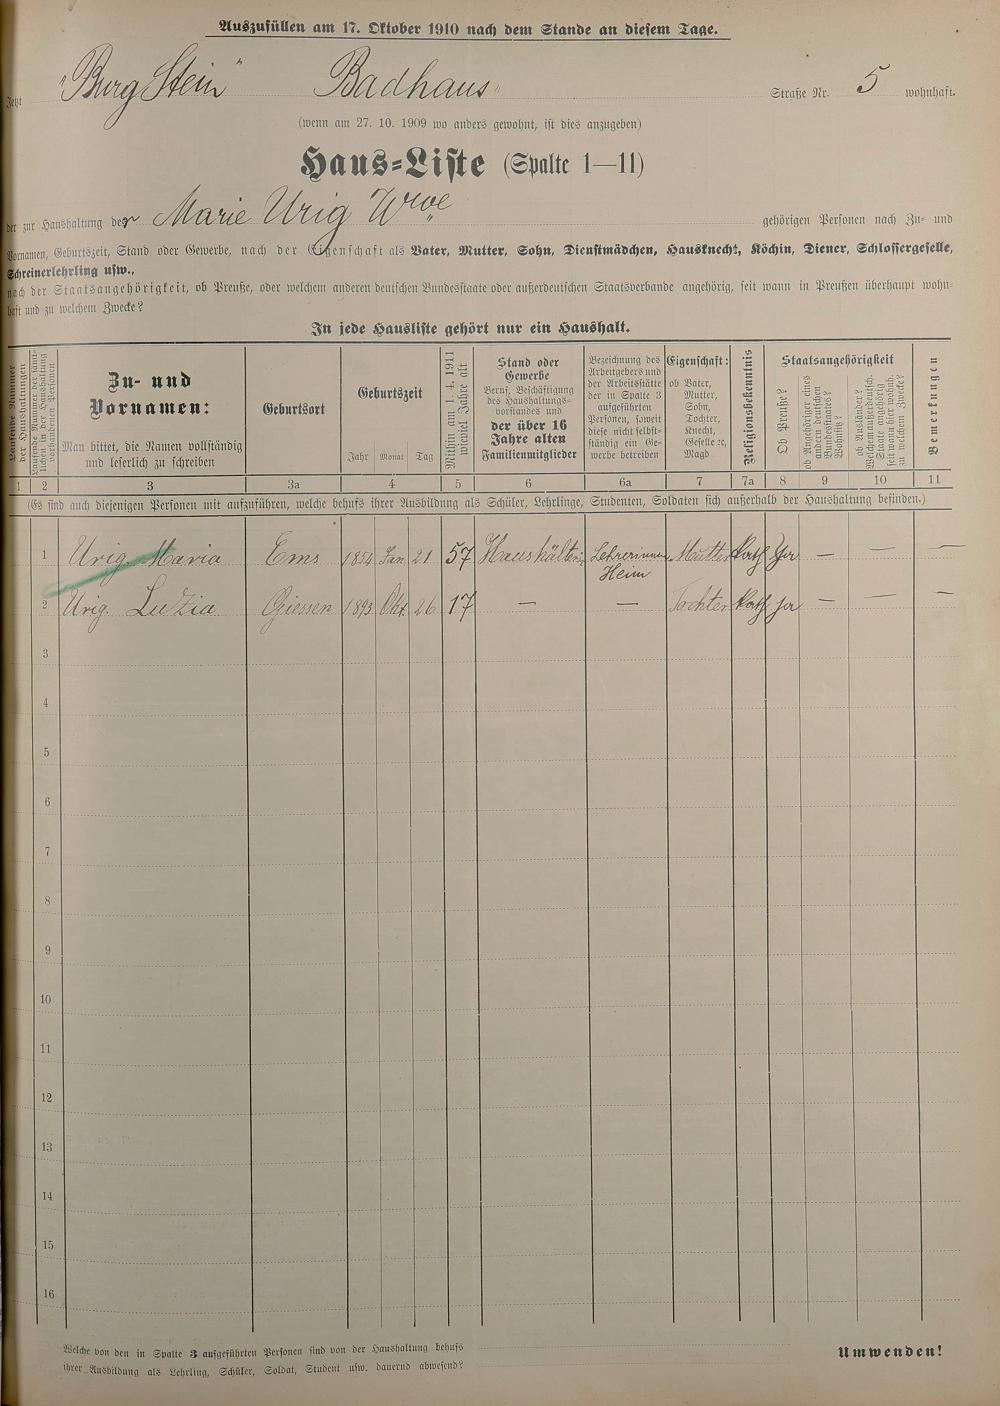 Auszufüllen am 17. Oktober 1910 nach dem Stande an diesem Tage.
Jetzt "Burg Stein" Badhaus" Straße Nr. 5 wohnhaft.
(wenn am 27. 10. 1909 wo anders gewohnt, ist dies anzugeben)
Haus=Liste (Spalte 1—11)
der zur Haushaltung der Marie Urig Wwe gehörigen Personen nach Zu= und
Vornamen, Geburtszeit, Stand oder Gewerbe, nach der Eigenschaft als Vater, Mutter, Sohn, Dienstmädchen, Hausknecht, Köchin, Diener, Schlossergeselle,
Schreinerlehrling usw.,
nach der Staatsangehörigkeit, ob Preuße, oder welchem anderen deutschen Bundesstaate oder außerdeutschen Staatsverbande angehörig, seit wann in Preußen überhaupt wohn=
haft und zu welchem Zwecke?
In jede Hausliste gehört nur ein Haushalt.
Laufende Nummer
der Haushaltungen
Laufende Nummer der sämt=
lichen in der Haushaltung
vorhandenen Personen
Zu= und
Vornamen:
Man bittet, die Namen vollständig
und leserlich zu schreiben
Geburtsort
Geburtszeit
Jahr Monat Tag
Mithin am 1. 4. 1911
wieviel Jahre alt
Stand oder
Gewerbe
Beruf, Beschäftigung
des Haushaltungs=
vorstandes und
der über 16
Jahre alten
Familienmitglieder
Bezeichnung des
Arbeitgebers und
der Arbeitsstätte
der in Spalte 3
aufgeführten
Personen, soweit
diese nicht selbst=
ständig ein Ge=
werbe betreiben
Eigenschaft:
ob Vater,
Mutter,
Sohn,
Tochter,
Knecht,
Geselle ꝛc,
Magd
Religionsbekenntnis
Staatsangehörigkeit
Ob Preuße?
ob Angehöriger eines
andern deutschen
Bundesstaates?
Wohnsitz?
ob Ausländer?
Welchem außerdeutsch.
Staate angehörig
seit wann hier wohnh.
zu welchem Zwecke?
Bemerkungen
1 2 3 3a 4 5 6 6a 7 7a 8 9 10 11
(Es sind auch diejenigen Personen mit aufzuführen, welche behufs ihrer Ausbildung als Schüler, Lehrlinge, Studenten, Soldaten sich außerhalb der Haushaltung befinden.)
1 Urig. Maria Ems 1854 Jan 21 57 Haushälterin Lehrerinnen Heim Mutter kath Ja — — —
2 Urig. Luzia Giessen 1893 Okt. 26 17 — — Tochter kath Ja — — —
3
4
5
6
7
8
9
10
11
12
13
14
15
16
Welche von den in Spalte 3 aufgeführten Personen sind von der Haushaltung behufs
ihrer Ausbildung als Lehrling, Schüler, Soldat, Student usw. dauernd abwesend?
Umwenden!